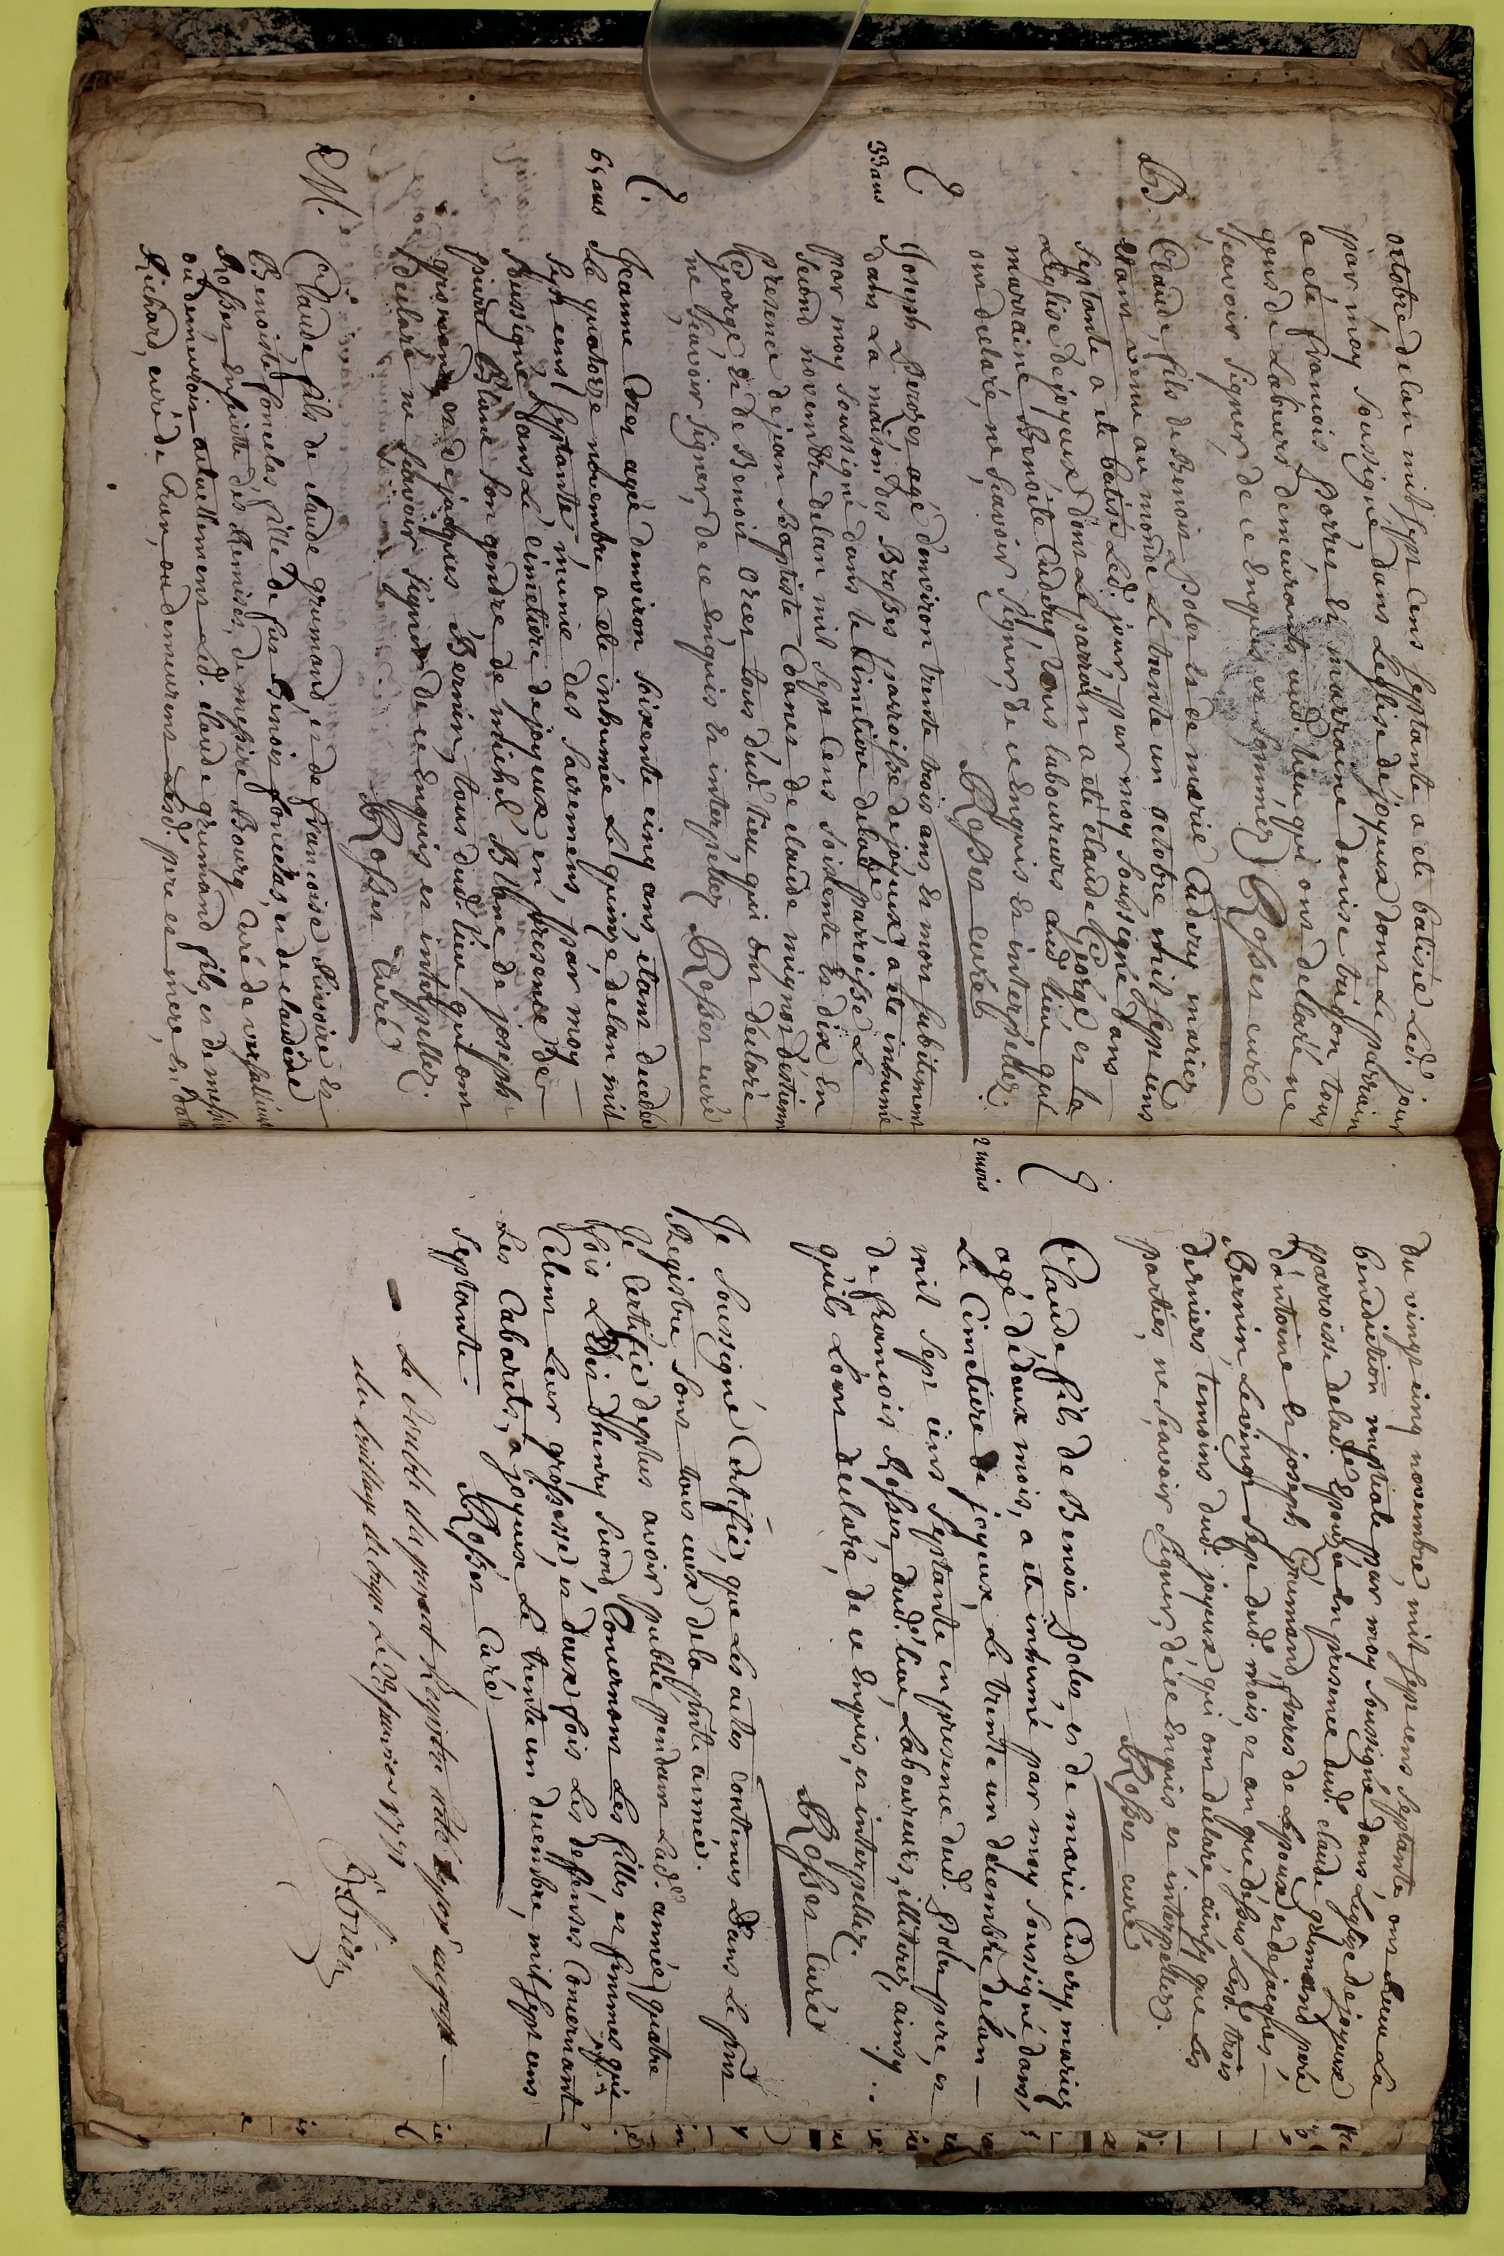 octobre de lan mil sept cens septante a eté batisée led. jour
par moy soussigné dans l'eglise de joyeux dont le parrain
a eté francois Porres et marraine denise trigon tous
gens de Labeurs demeurants aud. lieu qui ont declaré ne
scavoir signer de ce enquis et sommés Rosser curé
B. Claude, fils de Benoit Poles et de marie Cudery mariez
etant venu au monde le trente un octobre mil sept cens
septante a eté batisé led. jour, par moy soussigné dans
L'eglise de joyeux, dont le parrain a eté claude George et la
marraine Benoite Cudery, tous laboureurs aud. lieu qui
ont declaré, ne scavoir signer, de ce enquis et interpellez.
Rosser curé
E
33 ans
Joseph agé d'environ trente trois ans, et mort subitement
dans la maison des Brosses parroisse de joyeux, a eté inhumé
par moy soussigné dans le cimetiere de lad. parroisse le
second novembre de lan mil sept cens soixente et dix en
presence de jean Baptiste Coanes de claude mignot d'estienne
George, et de Benoit tous dud. lieu qui ont declaré
ne scavoir signer, de ce enquis et interpellez Rosser curé
E.
65 ans
Jeanne agé d'environ soixente cinq ans, etant decedé
le quatorze novembre a eté inhumée le quinze de lan mil
sept cens septante, munie des sacremens, par moy
soussigné, dans le cimetiere de joyeux en presence de
pierre Blanc son gendre de michel Blanc de joseph
et de jacques Bernin, tous dud. lieu qui ont
declaré ne scavoir signer de ce enquis et interpellez.
Rosser Curé
M. Claude fils de claude grumand, et de francoise et
Benoiste foncelas fille de feu Benoit foncelas, et de claudine
Rosser ensuitte des Remises, de messire Bourg, curé de
ou demeuroit actuellement led. claude grumand fils et de messire
Richard, curé de Cran, ou demeurent sesd. pere et mere, en datte
du vingt cinq novembre, mil sept cens septante ont receu La
benediction nuptiale par moy soussigné dans l'eglize de joyeux
parroisse de lad. epouze en presence dud. claude grumand pere
d'antoine et joseph Grumand freres de L'epoux et de jacques
Bernin le vingt sept dud. mois, et an que dessus, lesd. trois
derniers temoins dud. joyeux qui ont declaré, ainsy que les
parties, ne scavoir signer, de ce enquis et interpellez.
Rosser curé
E
2 mois
Claude fils de Benoit Poles, et de marie Cudery, mariez
agé de deux mois, a eté inhumé par moy soussigné dans,
Le Cimetiere de joyeux, le trente un decembre de lan
mil sept cens septante en presence dud. Poles pere, et
de francois Rosser, dud. lieu, Laboureurs, illiterez, ainsy
quils l'ont declaré de ce enquis, et interpellez.
Rosser Curé
Je soussigné Certifie, que les actes contenus dans le pnt
Registre sont tous ceux de la pnte année.
Je Certifie de plus avoir publié pendant lad. année quatre
fois L'edit d'henry second, Concernant les filles et femmes qui
Celent leur grossesse, et deux fois les deffenses Concernant
Les Cabarets, a joyeux, le trente un decembre, mil sept cens
septante. Rosser Curé
Le double du present Registre
du baillage de le 28 janvier 1771